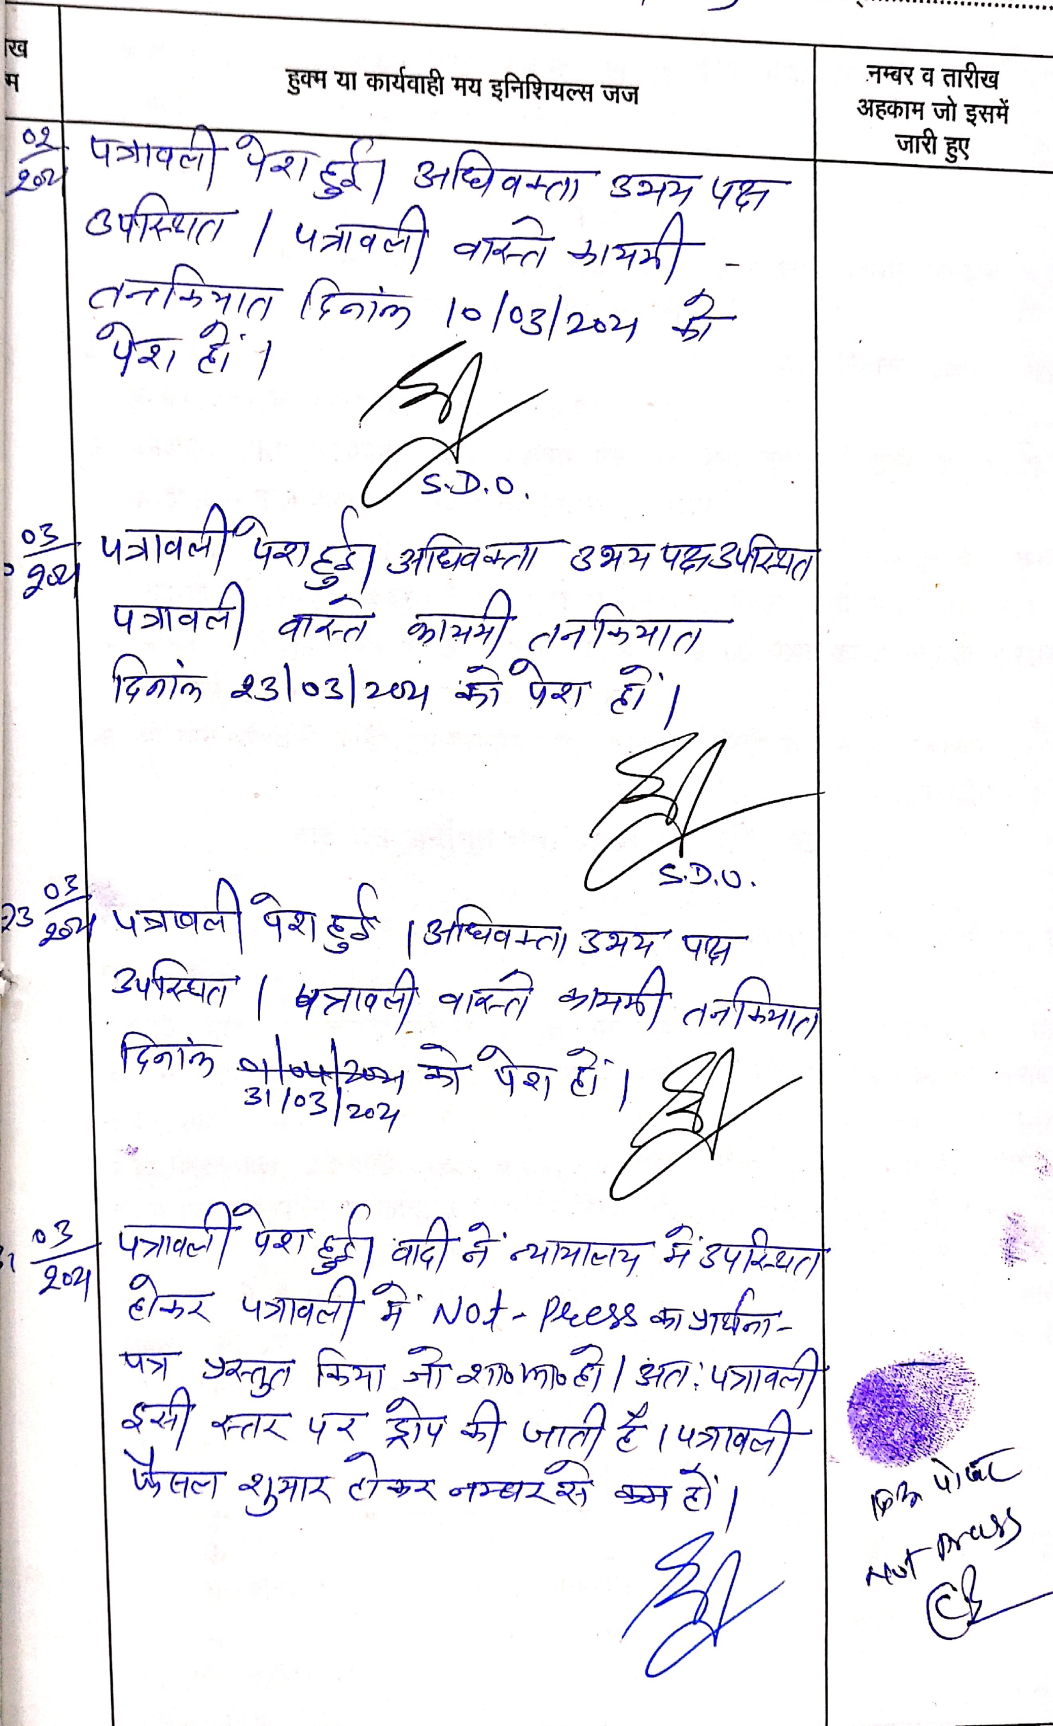 ख
म
हुक्म या कार्यवाही मय इनिशियल्स जज
नम्बर व तारीख
अहकाम जो इसमें
जारी हुए
02
2021
पत्रावली पेश हुई। अधिवक्ता उभय पक्ष
उपस्थित । पत्रावली वास्ते कायमी -
तनकियात दिनांक 10/03/2021 को
पेश हों ।
S.D.O.
03
2021
पत्रावली पेश हुई। अधिवक्ता उभय पक्ष उपस्थित
पत्रावली वास्ते कायमी तनकियात
दिनांक 23/03/2021 को पेश हों ।
S.D.O.
23 03
2021
पत्रावली पेश हुई । अधिवक्ता उभय पक्ष
उपस्थित । पत्रावली वास्ते कायमी तनकियात
दिनांक 01/04/2021 को पेश हों ।
31/03/2021
03
2021
पत्रावली पेश हुई। वादी ने न्यायालय में उपस्थित
होकर पत्रावली में Not-Press का प्रार्थना-
पत्र प्रस्तुत किया जो शा०मि० हो । अतः पत्रावली
इसी स्तर पर ड्रोप की जाती है । पत्रावली
फैसल शुमार होकर नम्बर से कम हों ।
Not press